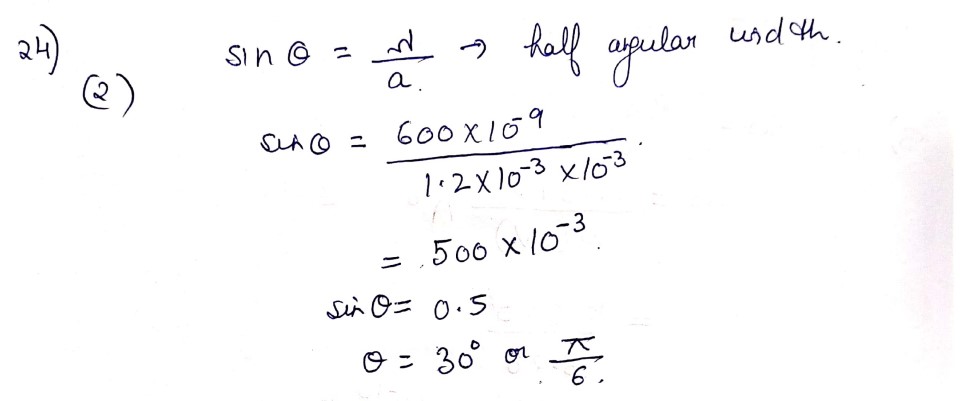 24)
(2)
sin θ = λ/a. → half angular width.
sin θ = 600 × 10⁻⁹ / 1.2 × 10⁻³ × 10⁻³.
= .500 × 10⁻³.
sin θ = 0.5
θ = 30° or π/6.